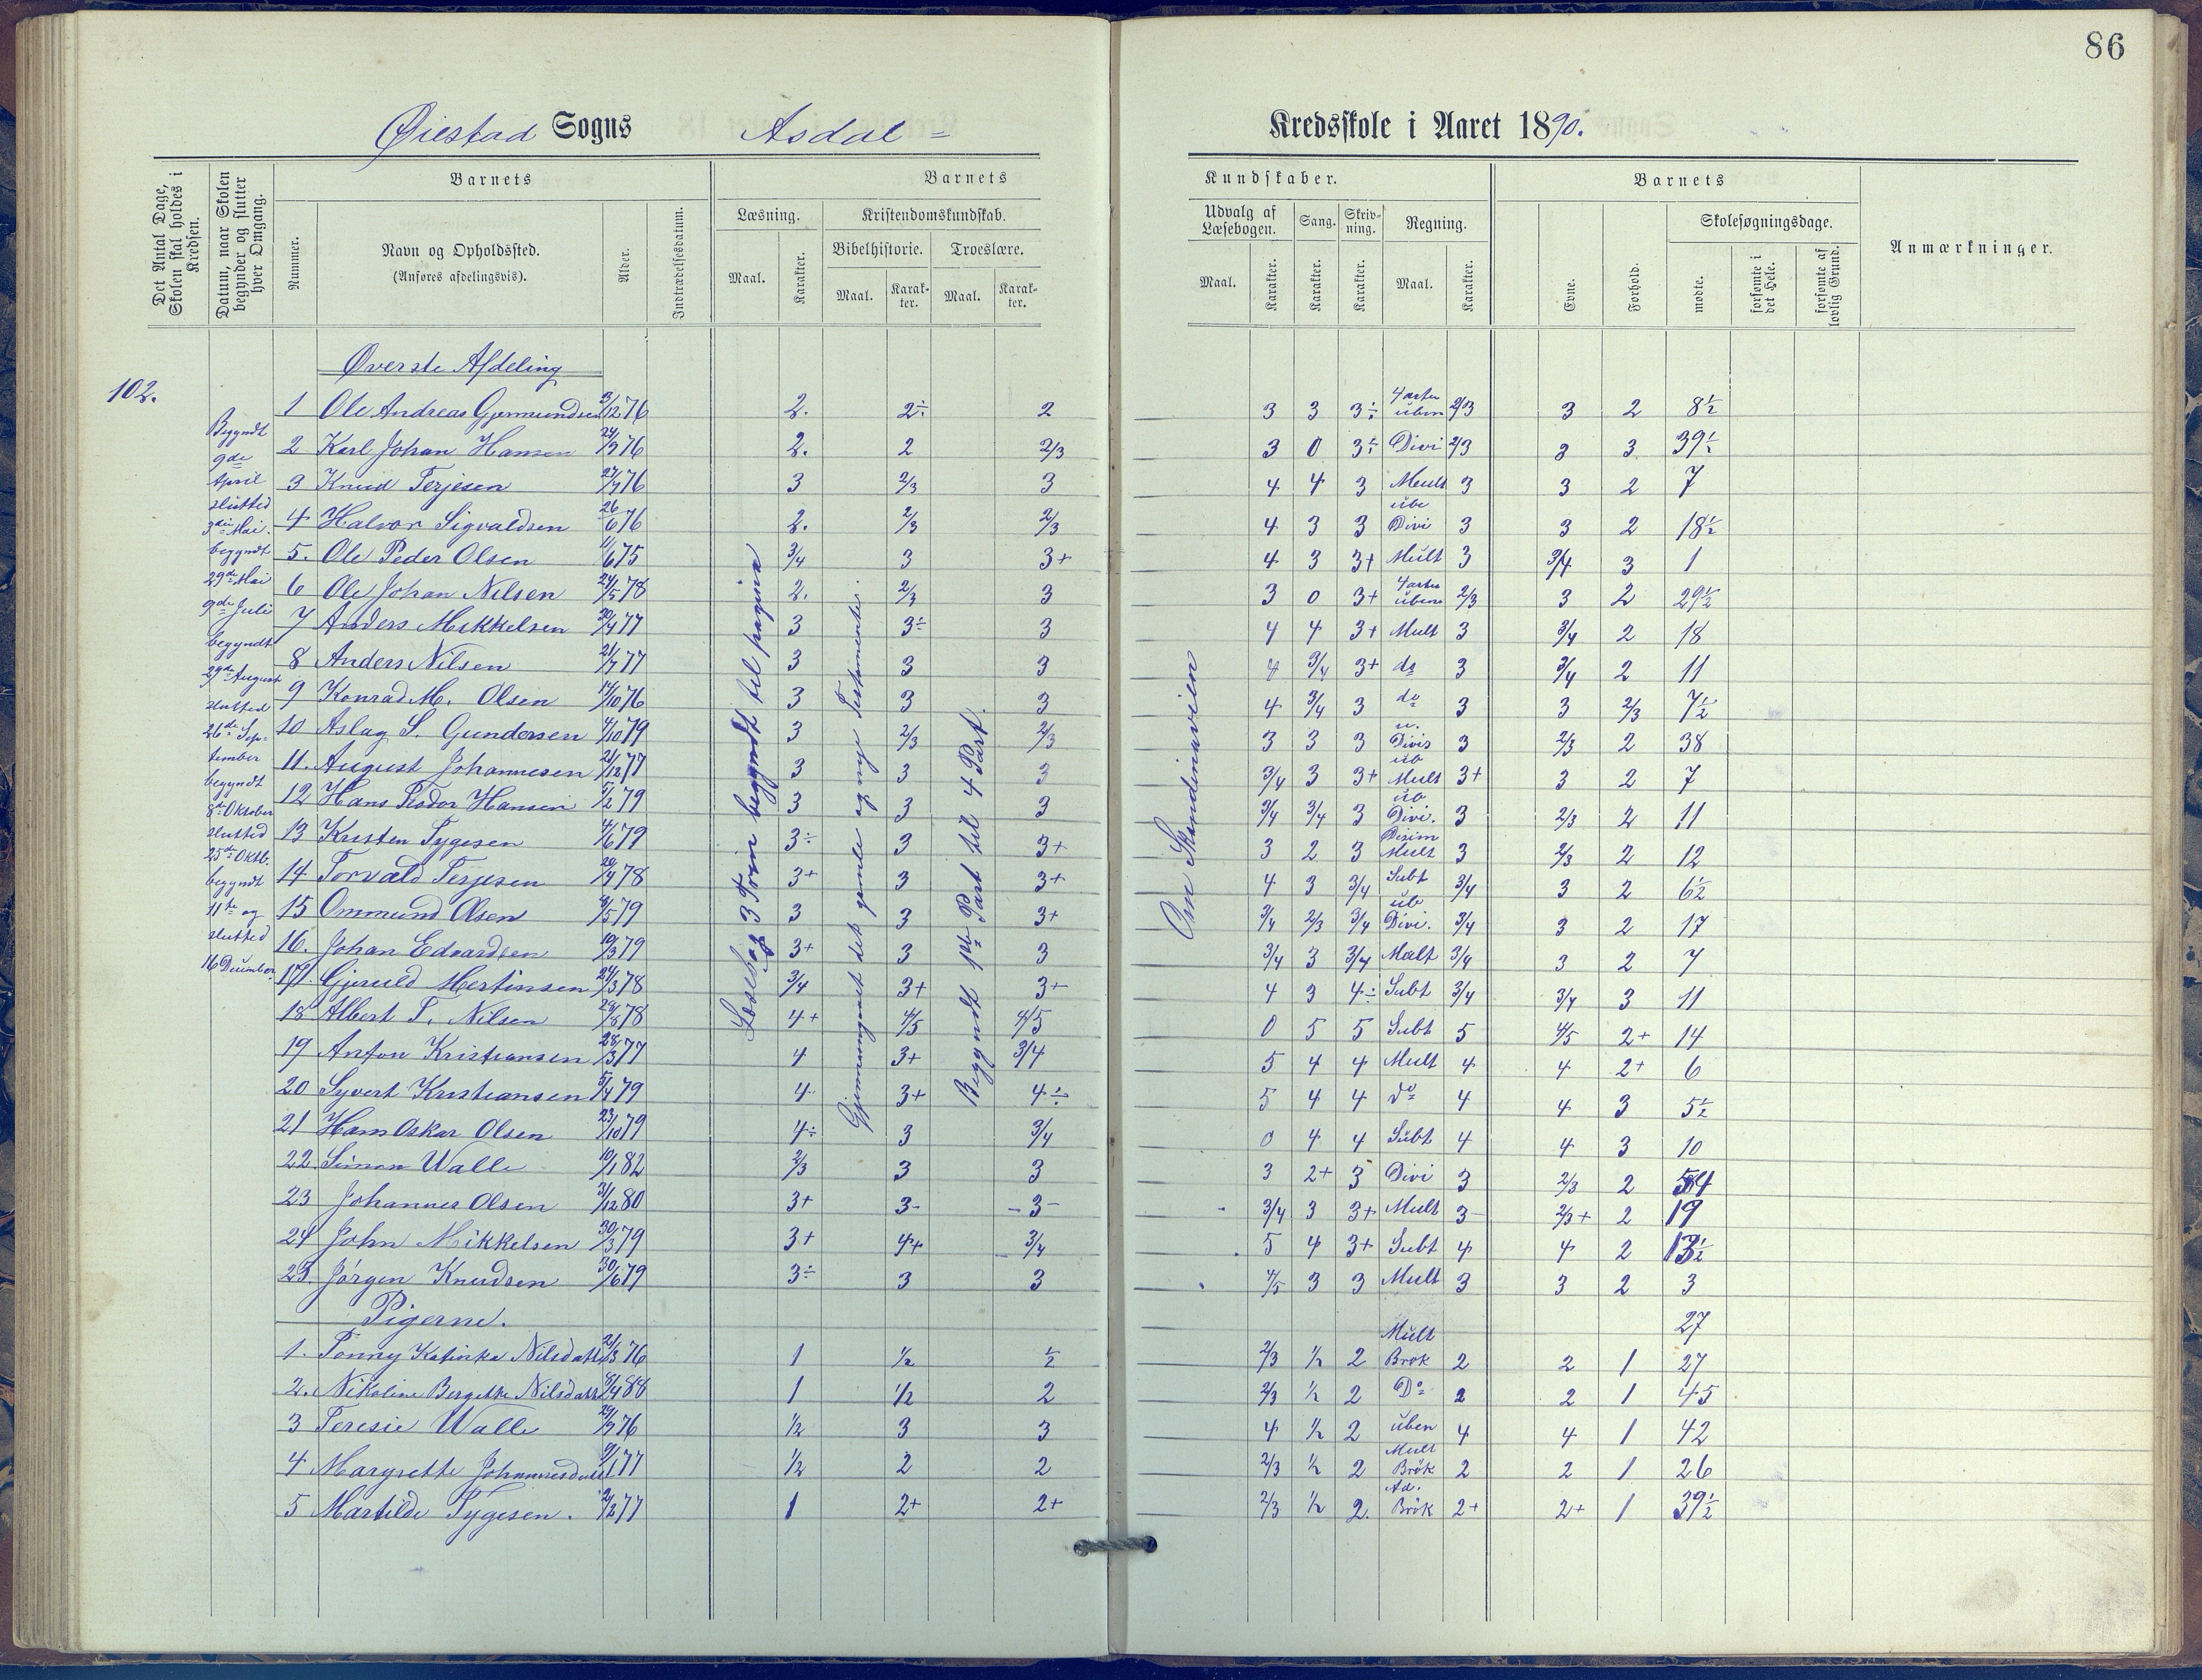 86
Øiestad Sogns Asdal = Kredsskole i Aaret 1890.
Det Antal Dage, Skolen skal holdes i Kredsen.
Datum, naar Skolen begynder og slutter hver Omgang.
Barnets
Nummer.
Navn og Opholdssted.
(Anføres afdelingsvis).
Alder.
Indtrædelsesdatum.
Barnets
Læsning.
Kristendomskundskab.
Bibelhistorie.
Troeslære.
Maal.
Karakter.
Maal.
Karak-
ter.
Maal.
Karak-
ter.
Kundskaber.
Udvalg af
Læsebogen.
Sang.
Skriv-
ning.
Regning.
Maal.
Karakter.
Karakter.
Karakter.
Maal.
Karakter.
Barnets
Evne.
Forhold.
Skolesøgningsdage.
mødte.
forsømte i
det Hele.
forsømte af
lovlig Grund.
Anmærkninger.
102.
Begyndt
9de
April
slutted
3die Mai.
begyndt
29de Mai
9de Juli
begyndt
29de August
slutted
26de Sep-
tember
begyndt
8de Oktober
slutted
25de Oktb.
begyndt
11te og
slutted
16 December
Øverste Afdeling
1 Ole Andreas Gjermundsen 3/12 76 2. 2÷ 2 3 3 3÷ 4 arter uben 2/3 3 2 8½
2 Karl Johan Hansen 24/9 76 2. 2 2/3 3 0 3÷ Divi 2/3 3 3 39½
3 Knud Terjesen 27/7 76 3 2/3 3 4 4 3 Mult 3 3 2 7
4 Halvor Sigvaldsen 26/6 76 2. 2/3 2/3 4 3 3 ube Divi 3 3 2 18½
5. Ole Peder Olsen 11/6 75 3/4 3 3+ 4 3 3+ Mult 3 3/4 3 1
6 Ole Johan Nilsen 24/5 78 2. 2/3 3 3 0 3+ 4 arter uben 2/3 3 2 29½
7 Anders Mikkelsen 30/4 77 3 3÷ 3 4 4 3+ Mult 3 3/4 2 18
8 Anders Nilsen 21/7 77 3 3 3 4 3/4 3+ do 3 3/4 2 11
9 Konrad M. Olsen 17/10 76 3 3 3 4 3/4 3 do 3 3 2/3 7½
10 Aslag S. Gundersen 4/10 79 3 2/3 2/3 3 3 3 u. Divis 3 2/3 2 38
11. August Johannesen 21/12 77 3 3 3 3/4 3 3+ ub Mult 3+ 3 2 7
12 Hans Pedor Hansen 5/2 79 3 3 3 3/4 3/4 3 ub Divi. 3 2/3 2 11
13 Kristen Tygesen 4/6 79 3÷ 3 3+ 3 2 3 Desim Mult 3 2/3 2 12
14 Torvald Terjesen 20/4 78 3+ 3 3+ 4 3 3/4 Subt 3/4 3 2 6½
15 Ommund Olsen 8/5 79 3 3 3+ 3/4 2/3 3/4 ub Divi. 3/4 3 2 17
16. Johan Edvardsen 19/3 79 3+ 3 3 3/4 3 3/4 Malt 3/4 3 2 7
17. Gjeruld Mertinsen 24/3 78 3/4 3+ 3+ 4 3 4÷ Subt 3/4 3/4 3 11
18 Albert T. Nilsen 29/8 78 4+ 4/5 4/5 0 5 5 Subt 5 4/5 2+ 14
19 Anton Kristiansen 28/3 77 4 3+ 3/4 5 4 4 Mult 4 4 2+ 6
20 Syvert Kristiansen 5/4 79 4 3+ 4÷ 5 4 4 do 4 4 3 5½
21 Hans Oskar Olsen 23/10 79 4÷ 3 3/4 0 4 4 Subt 4 4 3 10
22 Simon Walle 19/1 82 2/3 3 3 3 2+ 3 Divi 3 2/3 2 54
23 Johannes Olsen 31/12 80 3+ 3- -3- 3/4 3 3+ Mult 3- 2/3+ 2 19
24 John Mikkelsen 30/3 79 3+ 4+ 3/4 5 4 3+ Subt 4 4 2 13½
25. Jørgen Knudsen 30/6 79 3÷ 3 3 4/5 3 3 Mult 3 3 2 3
Pigerne. 27
1. Tonny Katinka Nilsdatt 21/3 76 1 ½ ½ 2/3 ½ 2 Mult Brøk 2 2 1 27
2. Nikoline Bergethe Nilsdatt 8/4 88 1 1/2 2 2/3 ½ 2 Do 2 2 1 45
3 Teresie Walle 29/9 76 ½ 3 3 4 ½ 2 uben 4 4 1 42
4 Margrethe Johannesdatt 9/1 77 ½ 2 2 2/3 ½ 2 Mult Brøk 2 2 1 26
5 Martilde Tygesen. 2/12 77 1 2+ 2+ 2/3 ½ 2. Ad. Brøk 2+ 2+ 1 39½
Læsebog 3 Trin begyndt til pagina
Gjennemgaaet det gamle og nye Testamente.
Begyndt 1ste Part til 4 Part.
Om Skandinavien